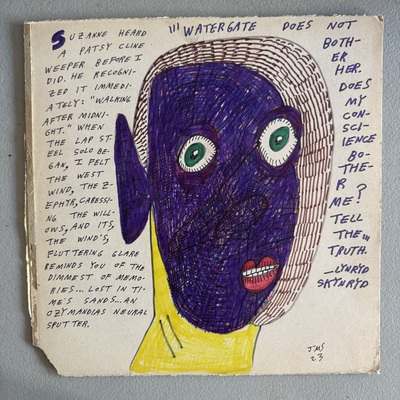 SUZANNE HEARD
A PATSY CLINE
WEEPER BEFORE I
DID. HE RECOGNI-
ZED IT IMMEDI-
ATELY: "WALKING
AFTER MIDNI-
GHT." WHEN
THE LAP ST-
EEL SOLO BE-
GAN, I FELT
THE WEST
WIND, THE Z-
EPHYR, CARESSI-
NG THE WILL-
OWS, AND ITS,
THE WIND'S,
FLUTTERING GLARE
REMINDS YOU OF THE
DIMMEST OF MEMO-
RIES... LOST IN TI-
ME'S SANDS... AN
OZYMANDIAS NEURAL
SPUTTER.
"'WATERGATE DOES NOT
BOTH-
ER
HER.
DOES
MY
CON-
SCI-
ENCE
BO-
THE-
R
ME?
TELL
THE
TRUTH.'"
—LYNRYD
SKYNRYD
JMS
23